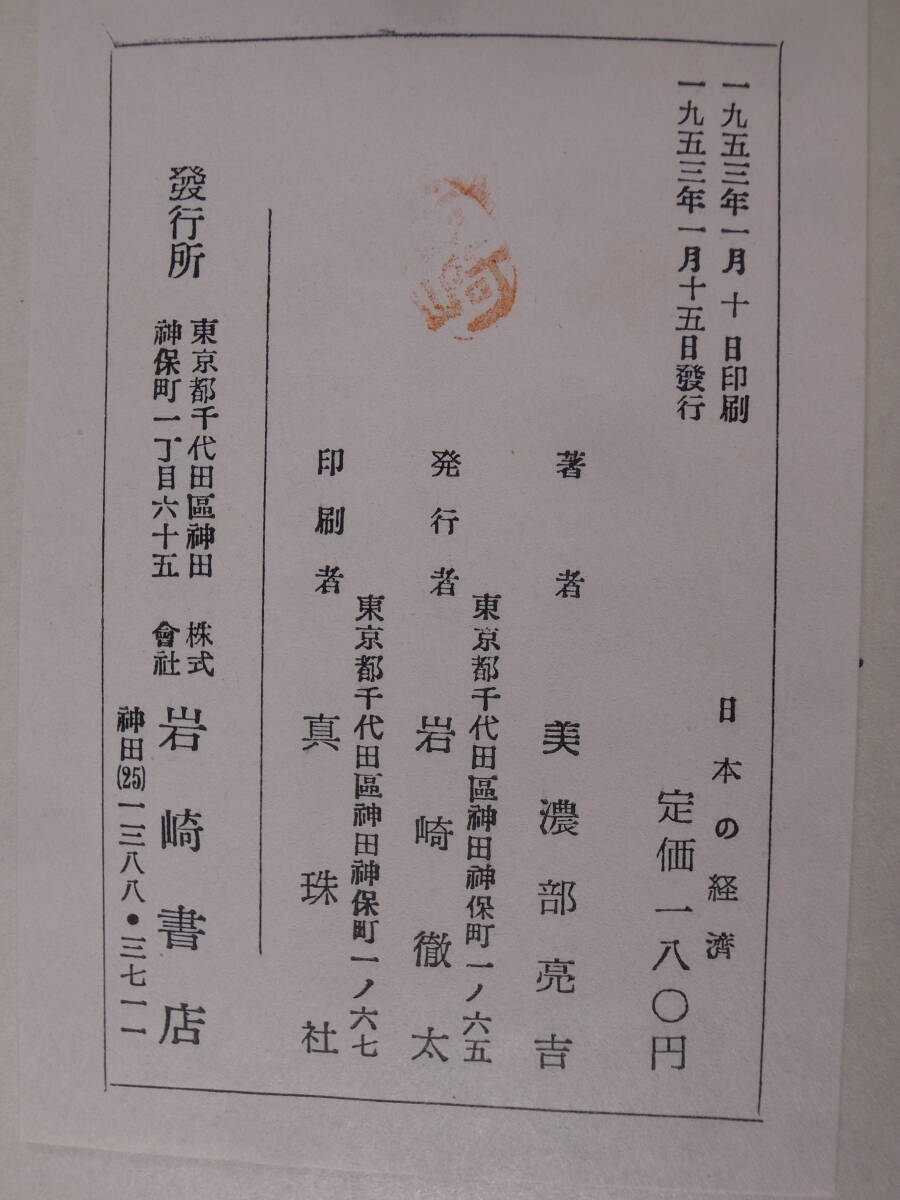 一九五三年一月十日印刷
一九五三年一月十五日發行
日本の経済
定価一八〇円
著者 美濃部亮吉
東京都千代田區神田神保町一ノ六五
発行者 岩崎徹太
東京都千代田區神田神保町一ノ六七
印刷者 真珠社
發行所
東京都千代田區神田
神保町一丁目六十五
株式
會社
岩崎書店
神田(25)一三八八・三七一一
崎